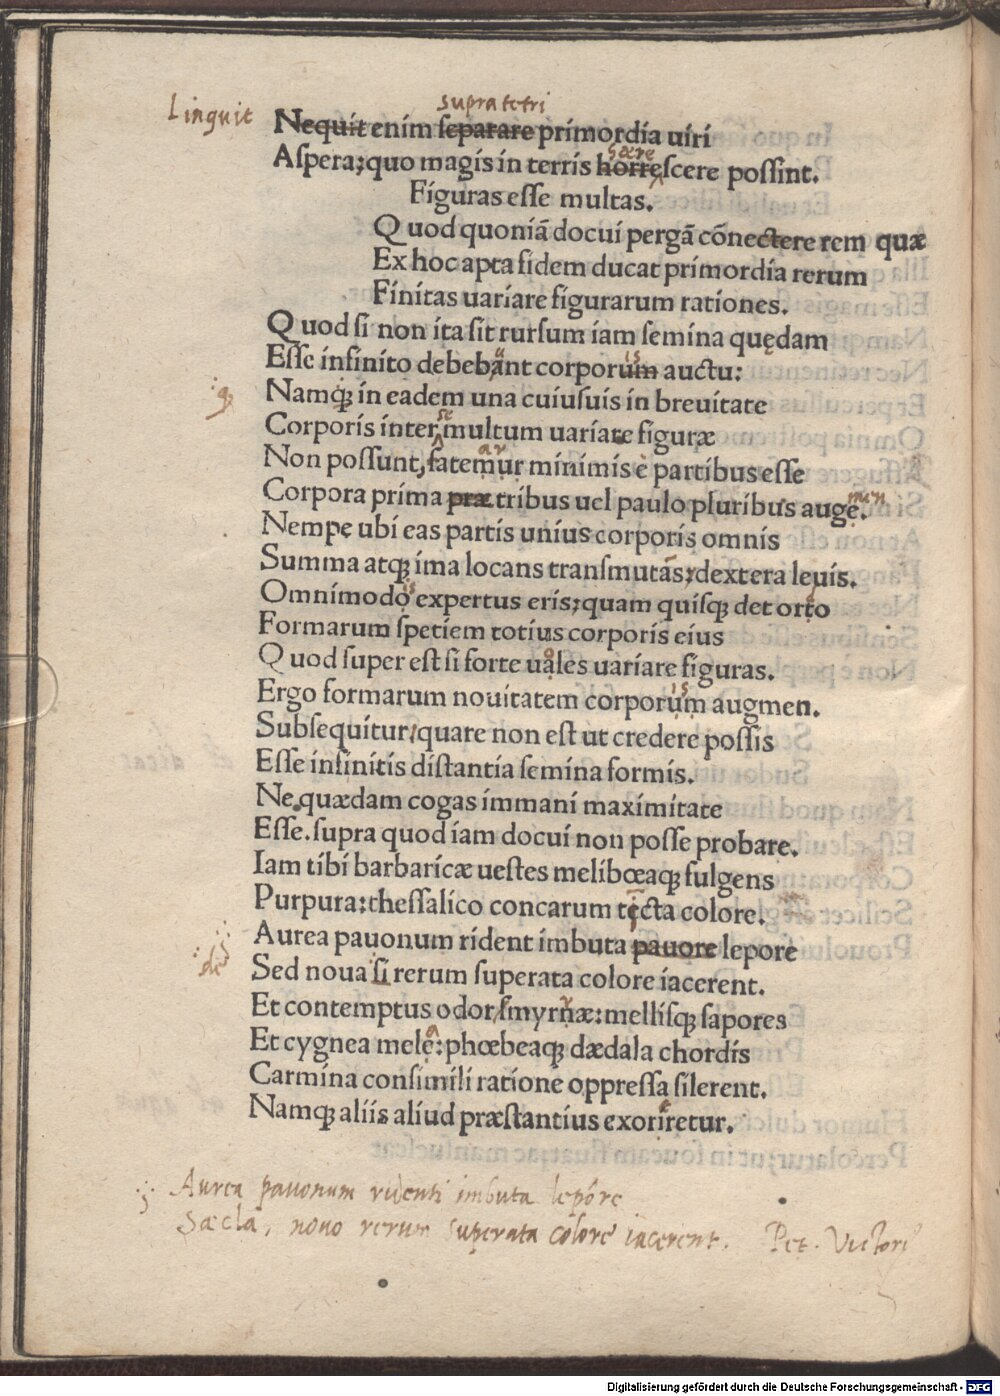 supra tetri
Linquit Nequit enim ſeparare primordia uiri
hære
Aſpera; quo magis in terris horreſcere poſſint.
Figuras eſſe multas.
Quod quoniã docui pergã cõnectere rem quæ
Ex hoc apta fidem ducat primordia rerum
Finitas uariare figurarum rationes.
Quod ſi non ita ſit rurſum iam ſemina quędam
Eſſe infinito debebant corporum auctu:
Namq; in eadem una cuiuſuis in breuitate
Corporis inter multum uariate figuræ
Non poſſunt, fatemur minimis e partibus eſſe
Corpora prima præ tribus uel paulo pluribus auge.
men
Nempe ubi eas partis unius corporis omnis
Summa atq; ima locans tranſmutãs; dextera leuis.
Omnimodo expertus eris; quam quiſq; det orto
Formarum ſpetiem totius corporis eius
Quod ſuper eſt ſi forte uales uariare figuras.
Ergo formarum nouitatem corporum augmen.
Subſequitur/quare non eſt ut credere poſſis
Eſſe infinitis diſtantia ſemina formis.
Ne quædam cogas immani maximitate
Eſſe. ſupra quod iam docui non poſſe probare.
Iam tibi barbaricæ ueſtes melibœaq; fulgens
Purpura: theſſalico concarum tecta colore.
Aurea pauonum rident imbuta pauore lepore
Sed noua ſi rerum ſuperata colore iacerent.
Et contemptus odor ſmyrnæ: melliſq; ſapores
Et cygnea mele: phœbeaq; dædala chordis
Carmina conſimili ratione oppreſſa ſilerent.
Namq; aliis aliud præſtantius exoriretur.
Aurea pauonum ridenti imbuta lepóre
Sæcla, nouo rerum superata colore iacerent. Pet. Victorj
Digitalisierung gefördert durch die Deutsche Forschungsgemeinschaft - DFG